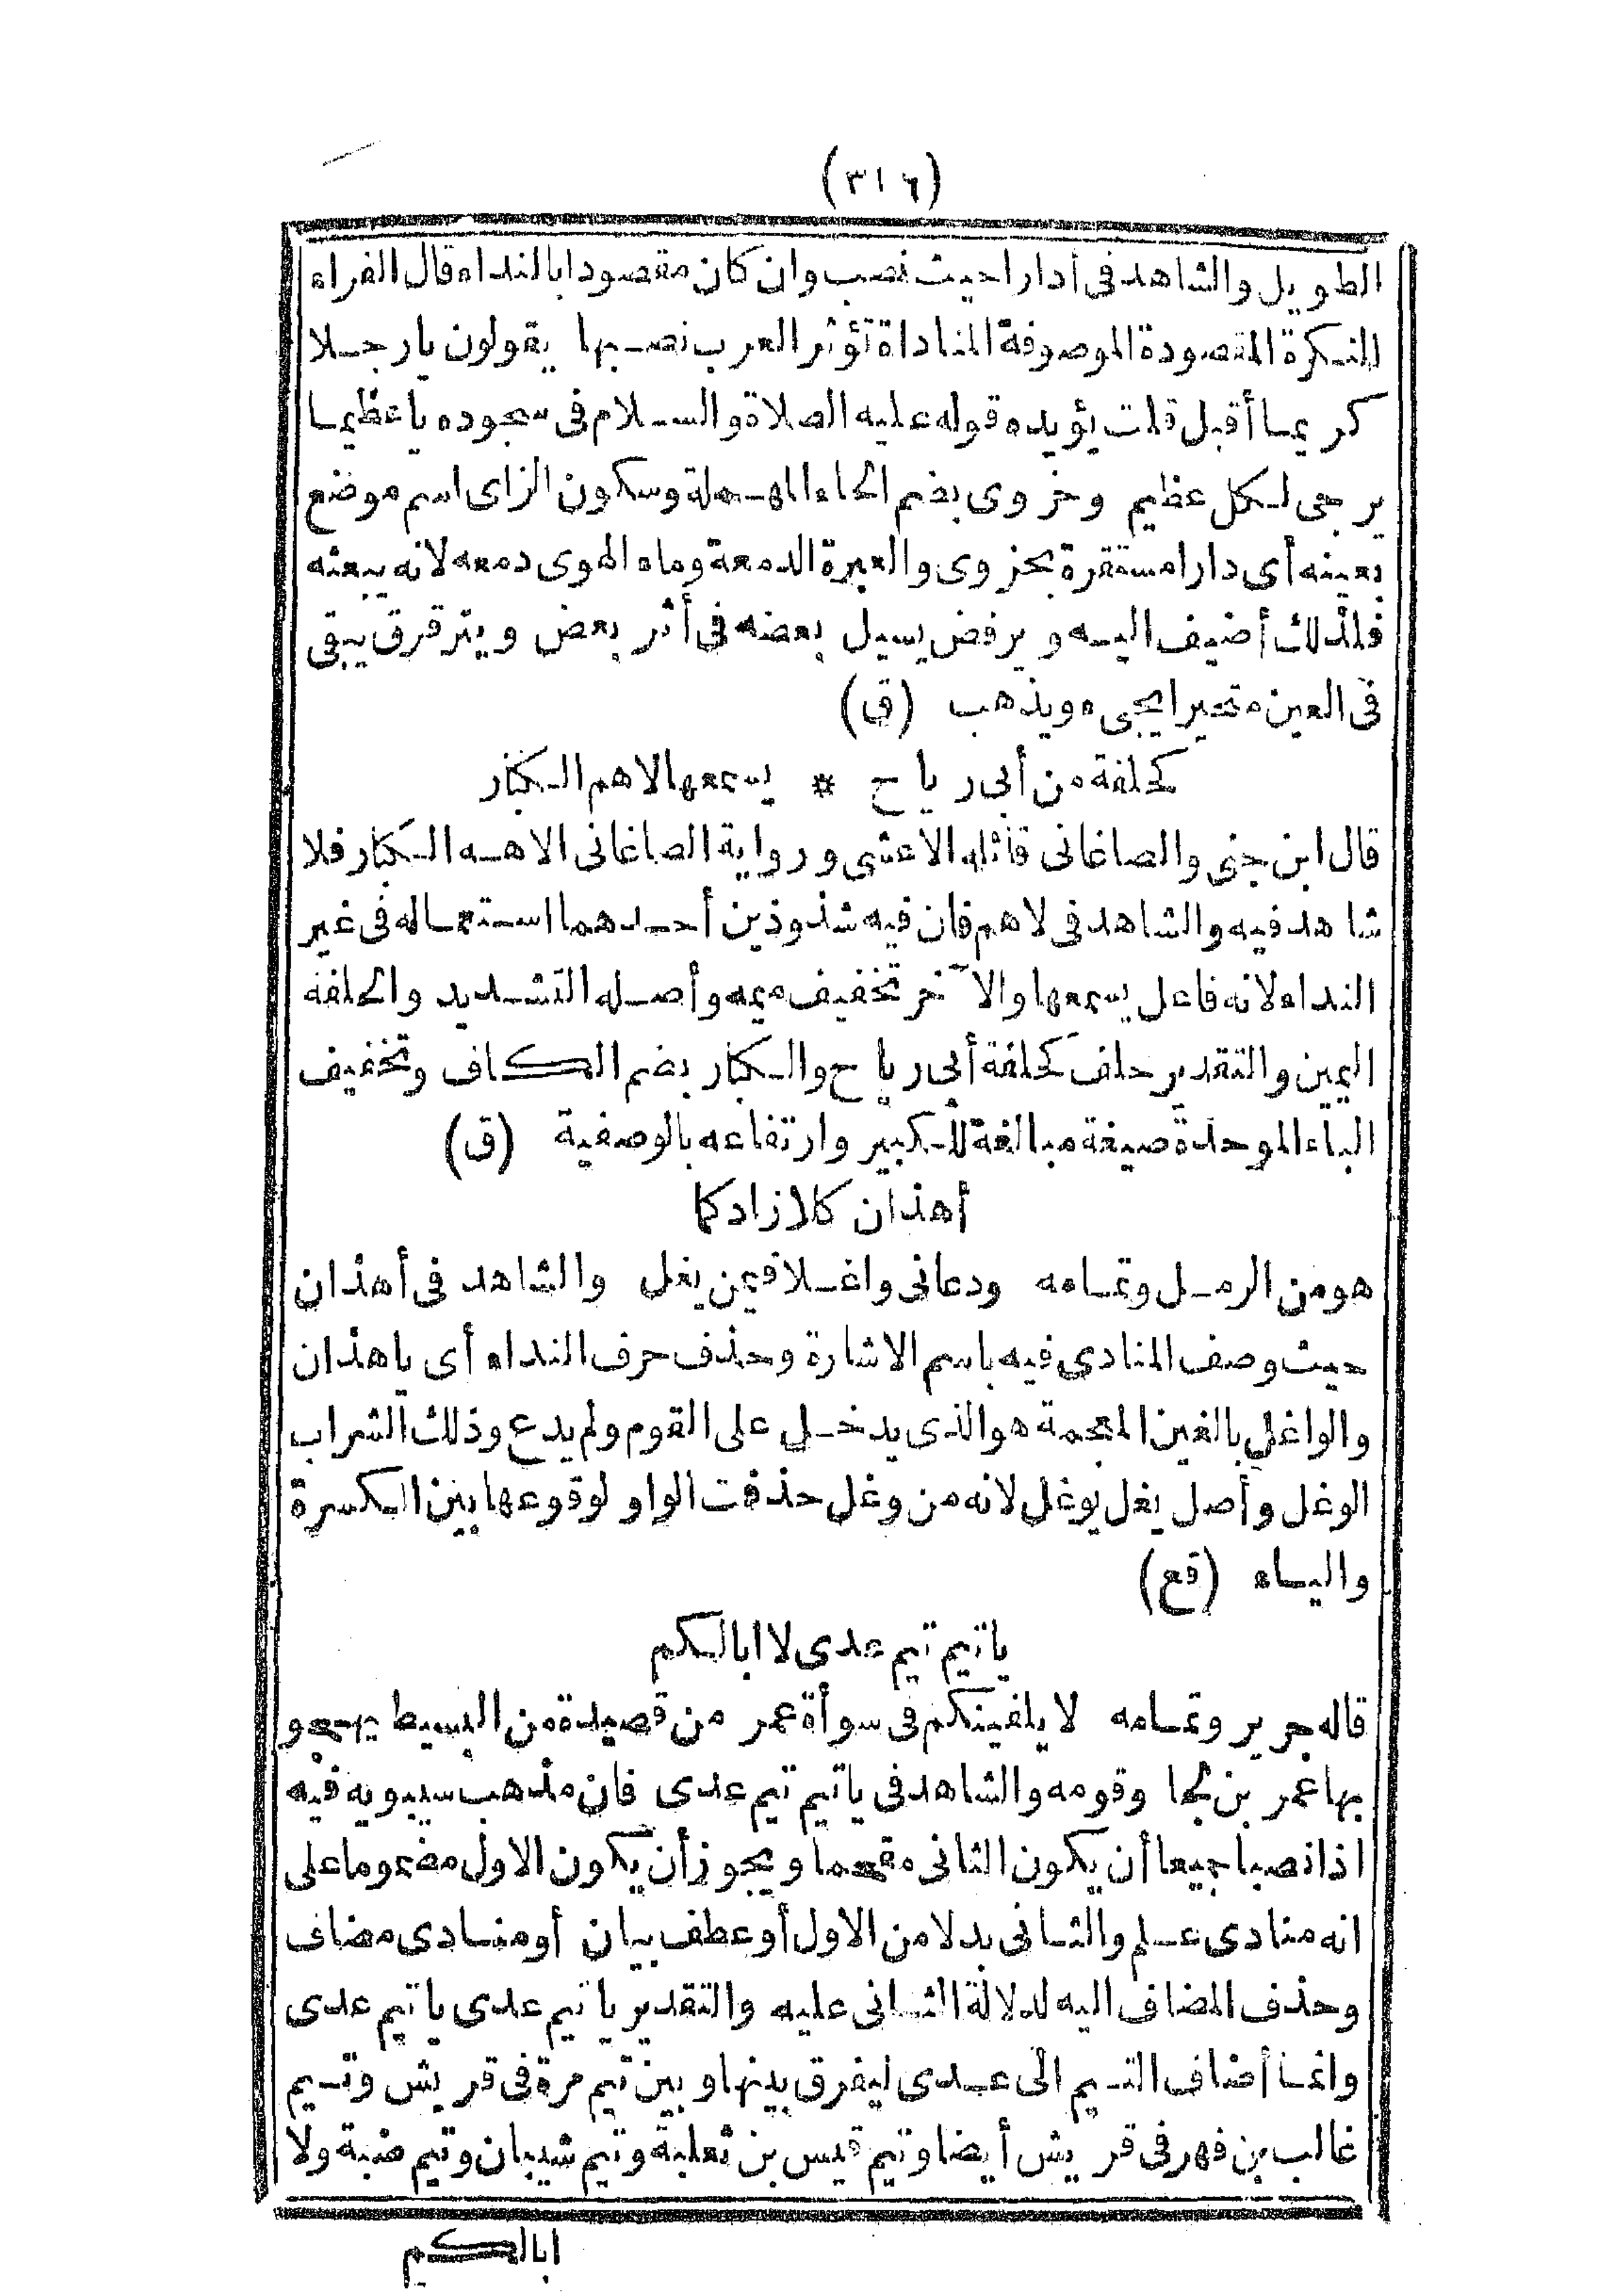 (٣١٦)
الطويل والشاهد فى أدارا حيث نصب وان كان مقصودا بالنداء قال الفراء
النكرة المقصودة الموصوفة المناداة تؤثر العرب نصبها يقولون يا رجلا
كريما أقبل قلت يؤيده قوله عليه الصلاة والسلام فى سجوده يا عظيما
يرجى لكل عظيم وحزوى بضم الحاء المهملة وسكون الزاى اسم موضع
بعينه أى دارا مستقرة بحزوى والعبرة الدمعة وماء الهوى دمعه لانه يبعثه
فلذلك أضيف اليه ويرفض يسيل بعضه فى أثر بعض ويترقرق يبقى
فى العين متحيرا يجىء ويذهب (ق)
كحلفة من أبى رياح * يسمعها لاهم الكبار
قال ابن جنى والصاغانى قائله الاعشى ورواية الصاغانى الاهه الكبار فلا
شاهد فيه والشاهد فى لاهم فان فيه شذوذين أحدهما استعماله فى غير
النداء لانه فاعل يسمعها والآخر تخفيف ميمه وأصله التشديد والحلفة
اليمين والتقدير حلف كحلفة أبى رياح والكبار بضم الكاف وتخفيف
الباء الموحدة صيغة مبالغة للكبير وارتفاعه بالوصفية (ق)
أهذان كلا زادكما
هو من الرمل وتمامه ودعانى واغلا فيمن يغل والشاهد فى أهذان
حيث وصف المنادى فيه باسم الاشارة وحذف حرف النداء أى يا هذان
والواغل بالغين المعجمة هو الذى يدخل على القوم ولم يدع وذلك الشراب
الوغل وأصل يغل يوغل لانه من وغل حذفت الواو لوقوعها بين الكسرة
والياء (قع)
يا تيم تيم عدى لا ابا لكم
قاله جرير وتمامه لا يلفينكم فى سوأة عمر من قصيدة من البسيط يهجو
بها عمر بن لجا وقومه والشاهد فى يا تيم تيم عدى فان مذهب سيبويه فيه
اذا نصبا جميعا أن يكون الثانى مقحما ويجوز أن يكون الاول مضموما على
انه منادى علم والثانى بدلا من الاول أو عطف بيان أو منادى مضاف
وحذف المضاف اليه لدلالة الثانى عليه والتقدير يا تيم عدى يا تيم عدى
وانما أضاف التيم الى عدى ليفرق بينها وبين تيم مرة فى قريش وتيم
غالب بن فهر فى قريش أيضا وتيم قيس بن ثعلبة وتيم شيبان وتيم ضبة ولا
ابا لكم